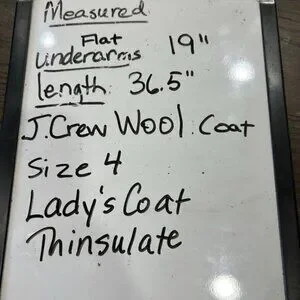 Measured
Flat
underarms 19"
length 36.5"
J.Crew Wool Coat
Size 4
Lady's Coat
Thinsulate